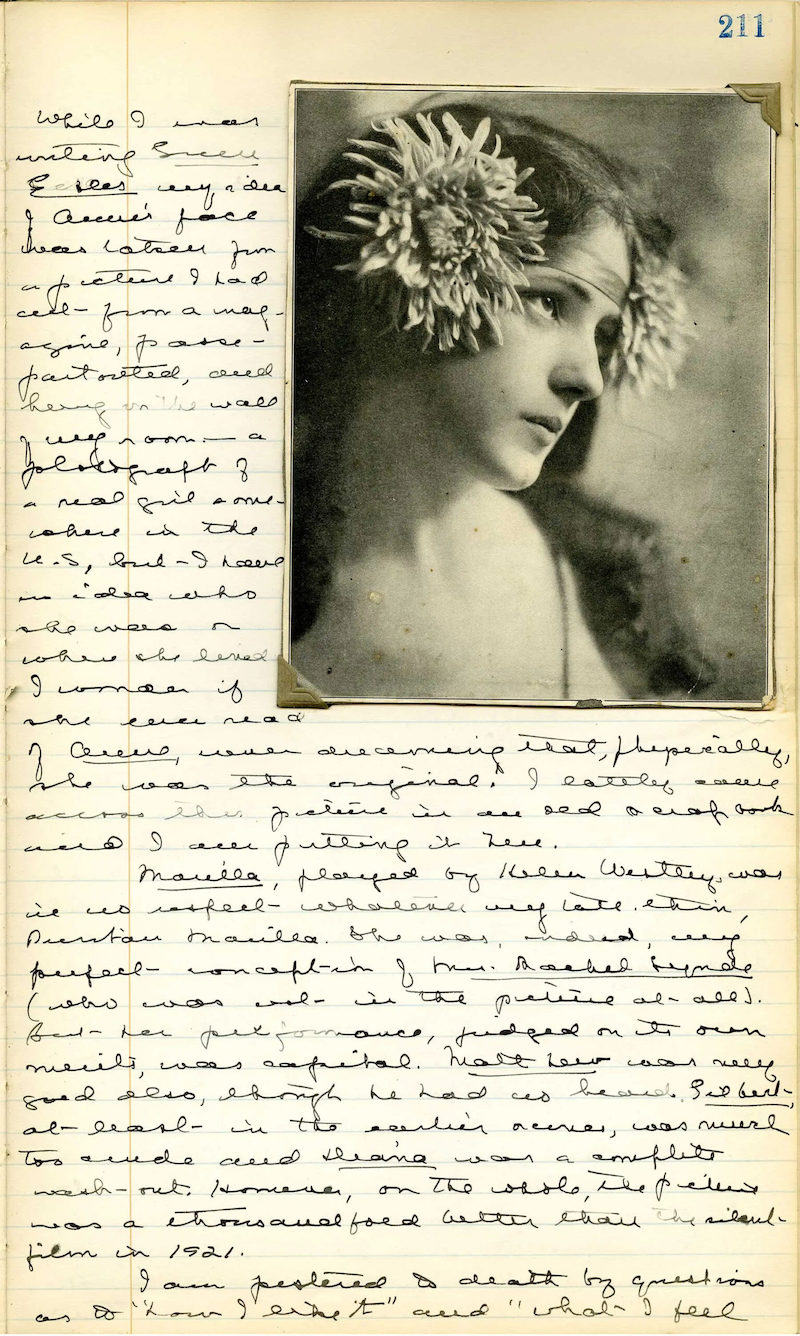 211
While I was
writing Green
Gables my idea
of Anne's face
was taken from
a picture I had
cut from a mag-
azine, passe-
partouted, and
hung on the wall
of my room — a
photograph of
a real girl some-
where in the
U.S, but I have
no idea who
she was or
where she lived
I wonder if
she ever read
of Anne, never dreaming that, physically,
she was the original. I lately came
across this picture in an old scrap book
and I am putting it here.
Marilla, played by Helen Westley, was
in no respect whatever my tall, thin,
Puritan Marilla. She was, indeed, my
perfect conception of Mrs. Rachel Lynde
(who was not in the picture at all).
But her performance, judged on its own
merits, was capital. Matthew was very
good also, though he had no beard. Gilbert,
at least in the earlier scenes, was much
too crude and Diana was a complete
wash-out. However, on the whole, the picture
was a thousandfold better than the silent
film in 1921.
I am pestered to death by questions
as to "how I like it" and "what I feel